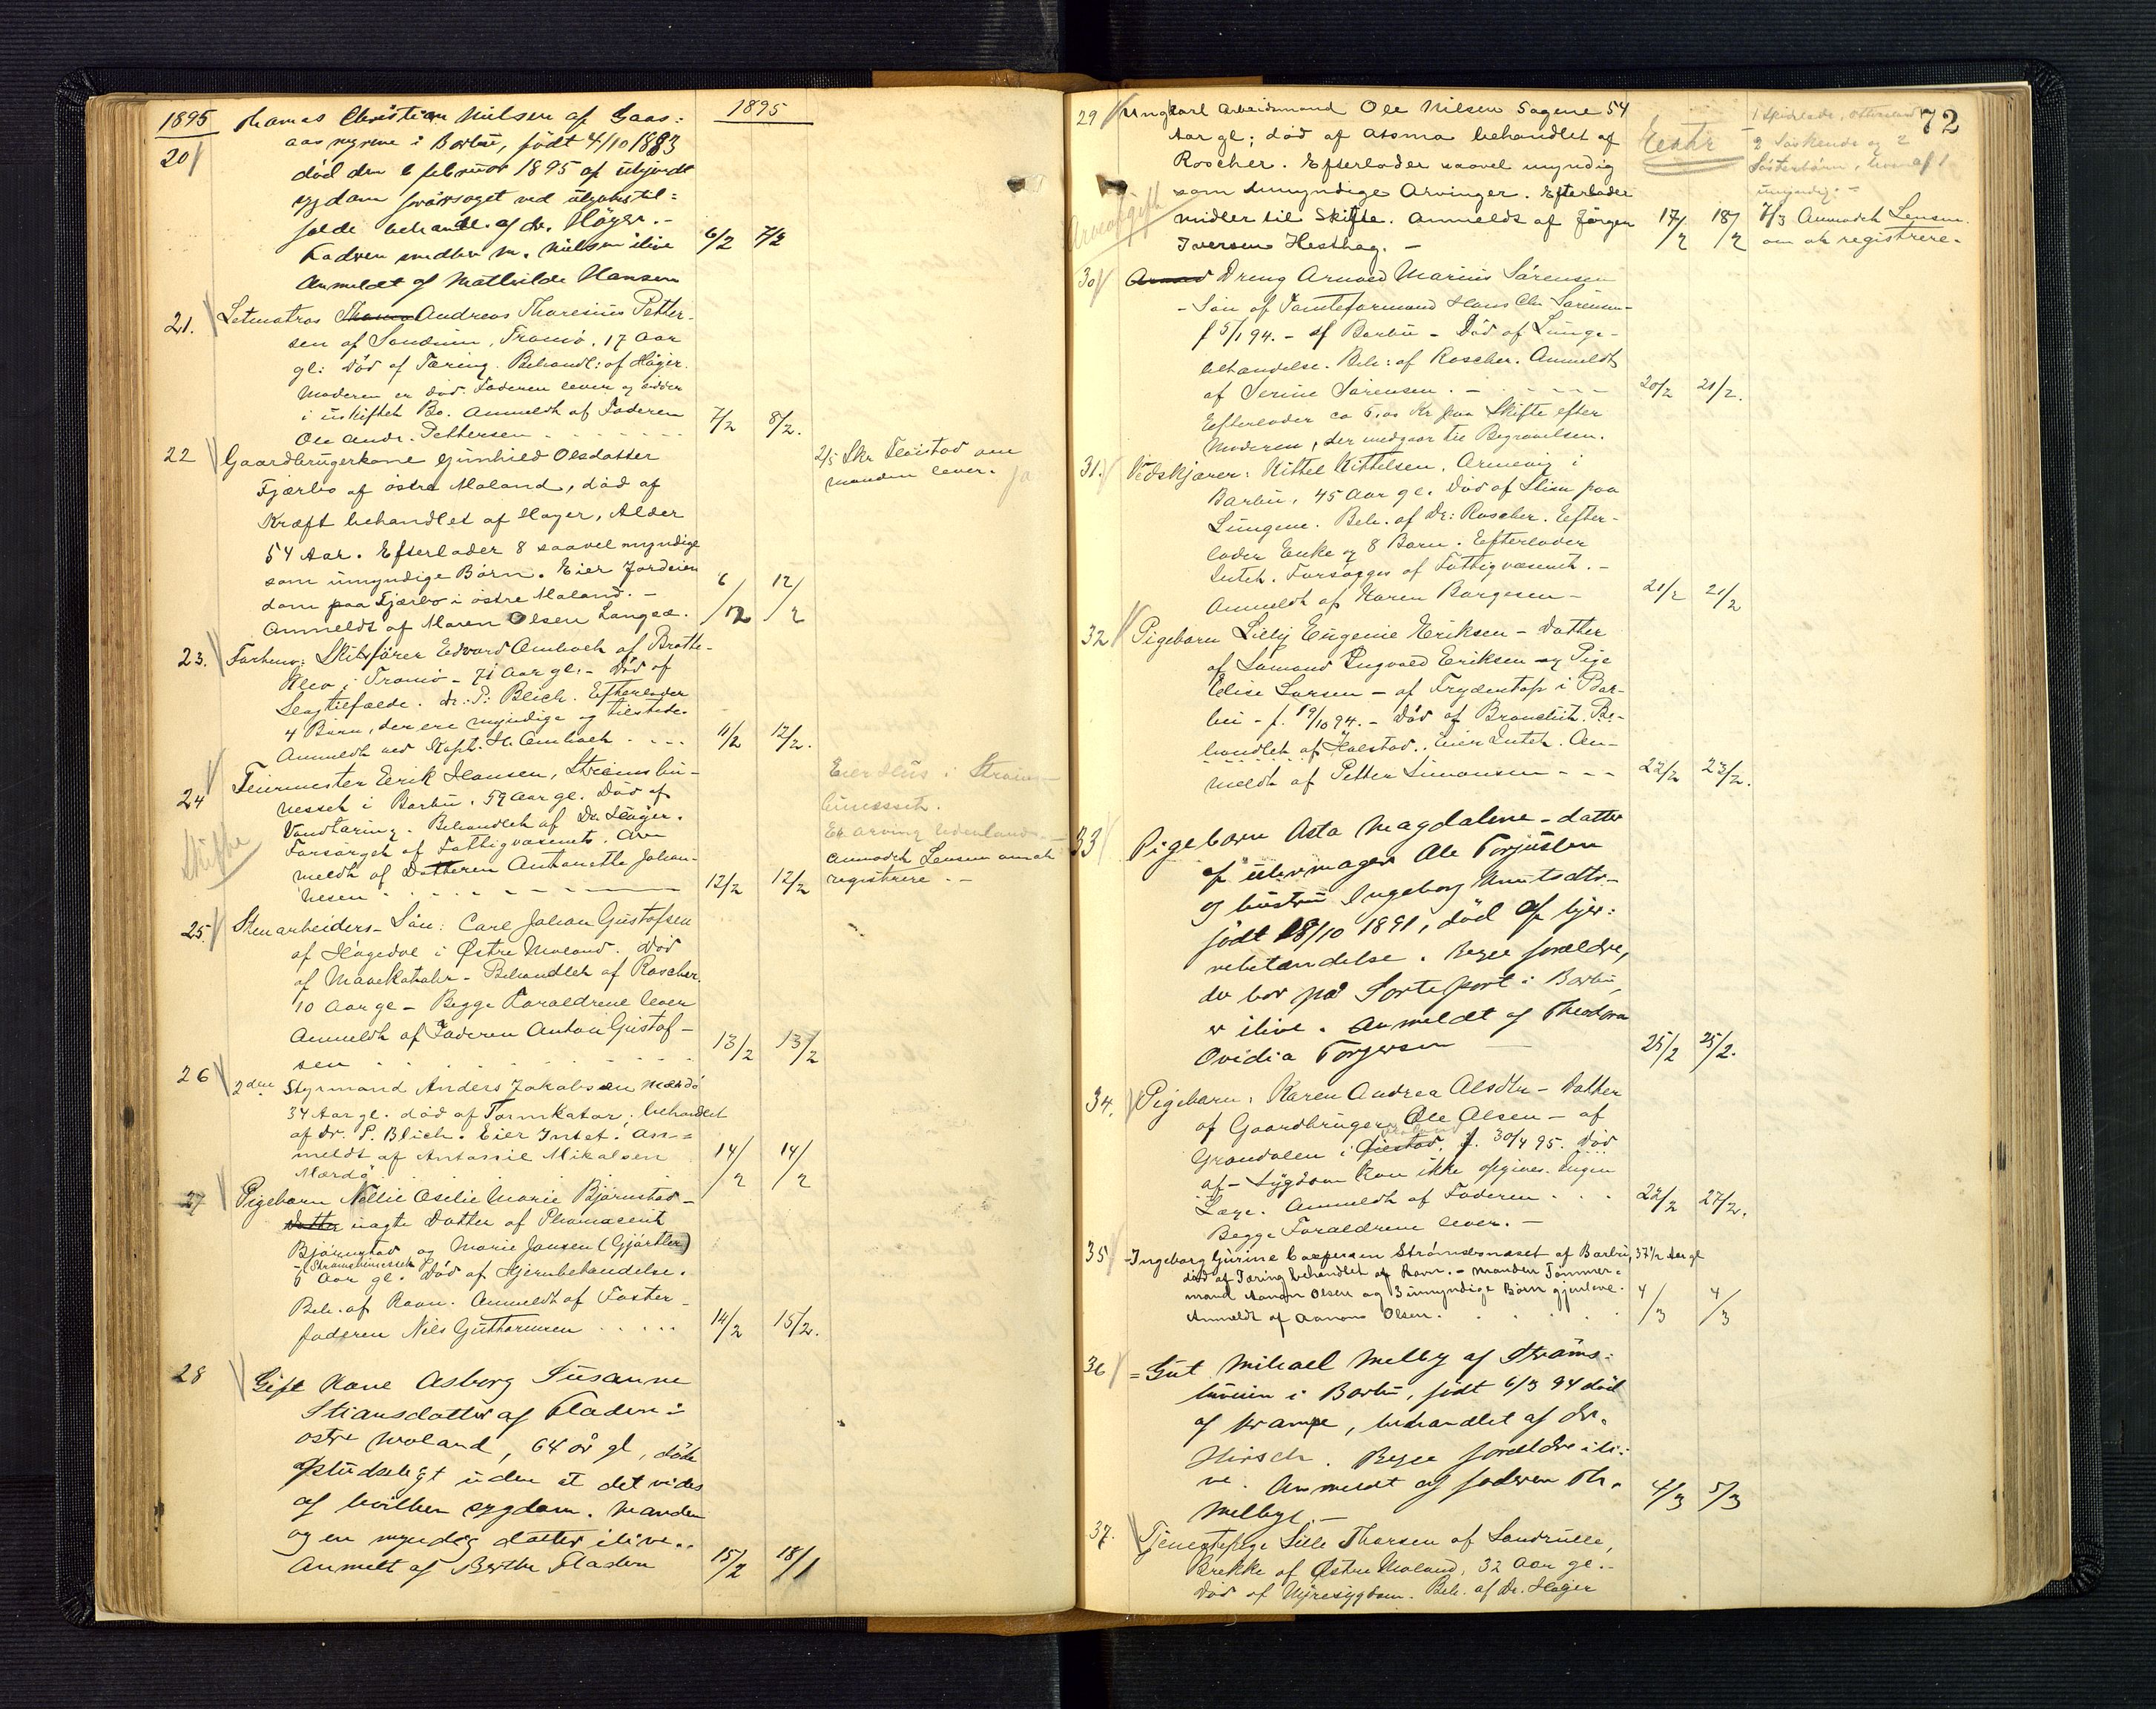 1895
1895
20
Thomas Christian Nilsen af Gaas:
aasmyrene i Barbu, født 4/10 1883
død den 6 februar 1895 af ubekjendt
sygdom foraarsaget ved ulykkestil:
fælde behandl. af dr. Höyer. -
Fadren smedben M. Nielsen ilive
Anmeldt af Mathilde Hansen
6/2 7/2
21. Letmatros Thomas Andreas Thoresius Petter-
sen af Sandum, Tromö. 17 Aar
gl: Död af Tæring. Behandl: af Höyer.
Moderen er död. Faderen lever og sidder
i uskiftet Bo. Anmeldt af Faderen
Ole Andr. Pettersen
7/2 8/2.
22 Gaardbrugerkone Gunhild Olsdatter
Fjærbo af östre Moland, död af
Kræft behandlet af Höyer, Alder
54 Aar. Efterlader 8 saavel myndige
som umyndige Börn. Eier Jordeien
dom paa Fjærbo i östre Moland. -
Anmeldt af Maren Olsen Langsæ.
6/12 12/2
2/5 Skr. Fløistad om
manden lever. ja
23. Forhenv: Skibsförer Edvard Ambach af Bratte-
klev i Tromö - 71 Aar gl. - Död af
Slagtilfælde. dr: P: Blich. Efterlader
4 Börn, der ere myndige og tilstede.
Anmeldt ved Kapt. H. Ambach
11/2 12/2.
24 Feiermester Eerik Hansen, Strömsbu-
nesset i Barbu. 59 Aar gl. Död af
Vandtæring. Behandlet af Dr. Höyer.
Forsörget af Fattigvæsenet. An
meldt af Datteren Antonette Johan-
nesen
12/2 12/2
Skifte
Eier Hus i Ströms-
bunesset.
En arving Udenlands. -
Anmodet Lensm om at
registrere. -
25. Stenarbeiders-Sön: Carl Johan Gustafsen
af Högedal i Østre Moland. Död
af Mavekatahr - Behandlet af Roscher.
10 Aar gl - Begge Foraldrene lever
Anmeldt af Faderen Anton Gustaf-
sen
13/2 13/2
26 2den Styrmand Anders Jakobsen Mærdö
34 Aar gl. död af Tarmkatar. behandlet
af dr. P. Blich. Eier Intet. An=
meldt af Antassie Mikalsen
Mærdö.
14/2 14/2
27 Pigebarn Nellie Oselie Marie Björnstad -
Datter uægte Datter af Pharmaceut
Björnstad og Marie Jansen (Gjörtler)
Strömsbunesset
6 Aar gl. Död af Hjernbetændelse.
Beh. af Ravn. Anmeldt af Foster-
faderen Niels Guttormsen
14/2 15/2.
28 Gift Kone Asborg Susanne
Stiansdatter af Fladen i
østre Moland, 64 år gl, döde
pludseligt uden at det vides
af hvilken sygdom. Manden
og en myndig datter ilive..
Anmelt af Berthe Fladen
15/2 18/1
72
29 Ungkarl Arbeidsmand Ole Nilsen Sagene 54
Aar gl; död af Atsma behandlet af
Roscher. Efterlader saavel myndig
som Umyndige Arvinger. Efterlader
midler til Skifte. Anmeldt af Jörgen
Iversen Hesthag. -
17/2 18/2
Arveavgift
2 Söskende og 2
Söskebörn, hvoraf 1
umyndig. -
7/3 Anmodet Lensm.
om at registrere.
30 Arnved Dreng Arnved Marius Sörensen
- Sön af Tomteformand Hans Chr Sörensen -
f 5/1 94. - af Barbu - Död af Lunge-
betændelse. Beh: af Roscher. Anmeldt
af Serine Sörensen. -
Efterlader ca 5.00 Kr paa Skifte efter
Moderen, der medgaar til Begravelsen.
20/2 21/2.
31. Vedskjærer: Kittel Kittelsen, Arnevig i
Barbu, 45 Aar gl. Död af Sliim paa
Lungene. Beh. af Dr: Roscher. Efter-
lader Enke og 8 Barn. Efterlader
Intet. Forsörges af Fattigvæsenet. -
Anmeldt af Karen Borgesen -
21/2 21/2
32 Pigebarn Lilly Eugenie Eriksen - datter
af Sömand Ingvald Eriksen og Pige
Elise Larsen - af Frydentop i Bar-
bu - f. 19/10 94. - Död af Bronchit. Be-
handlet af Halstad. Eier Intet. An-
meldt af Petter Simonsen
22/2 23/2.
33 Pigebarn Asta Magdalene - datter
af urmager Ole Torjussen
og hustru Ingeborg Knutsdtr-
født 28/10 1891, død af hjer:
nebetændelse. Begge foreldre,
der bor på Sorteport i Barbu,
er ilive. Anmeldt af Theodora
Ovidia Torjersen
25/2 25/2.
34. Pigebarn: Karen Andrea Olsdtr - Datter
af Gaardbruger Ole Olsen - af
Grandalen i Öiestad, f. 30/4 95. Död
af - Sygdom kan ikke opgives. Ingen
Læge. Anmeldt af Faderen
Begge Foraldrene lever. -
22/2 27/2.
35 - Ingeborg Gurine Caspersen Strömsbunæset af Barbu, 37 1/2 Aar gl
död af Tæring behandlet af Ravn. - Manden Tömmer=
mand Aanon Olsen og 3 umyndige Börn gjenleve.
Anmeldt af Aanon Olsen.
4/3 4/3
36 = Gut Mikael Melby af Ströms:
buveien i Barbu, födt 6/3 94 död
af krampe, behandlet af dr.
Hirsch. Begge foreldre ili:
ve. Anmeldt af faderen Th.
Melby. -
4/3 5/3
37. Tjenestepige Sille Thorsen af Sandrulle,
Brekke af Østre Moland, 32 Aar gl. -
Död af Nyresygdom. Beh. af Dr. Höyer